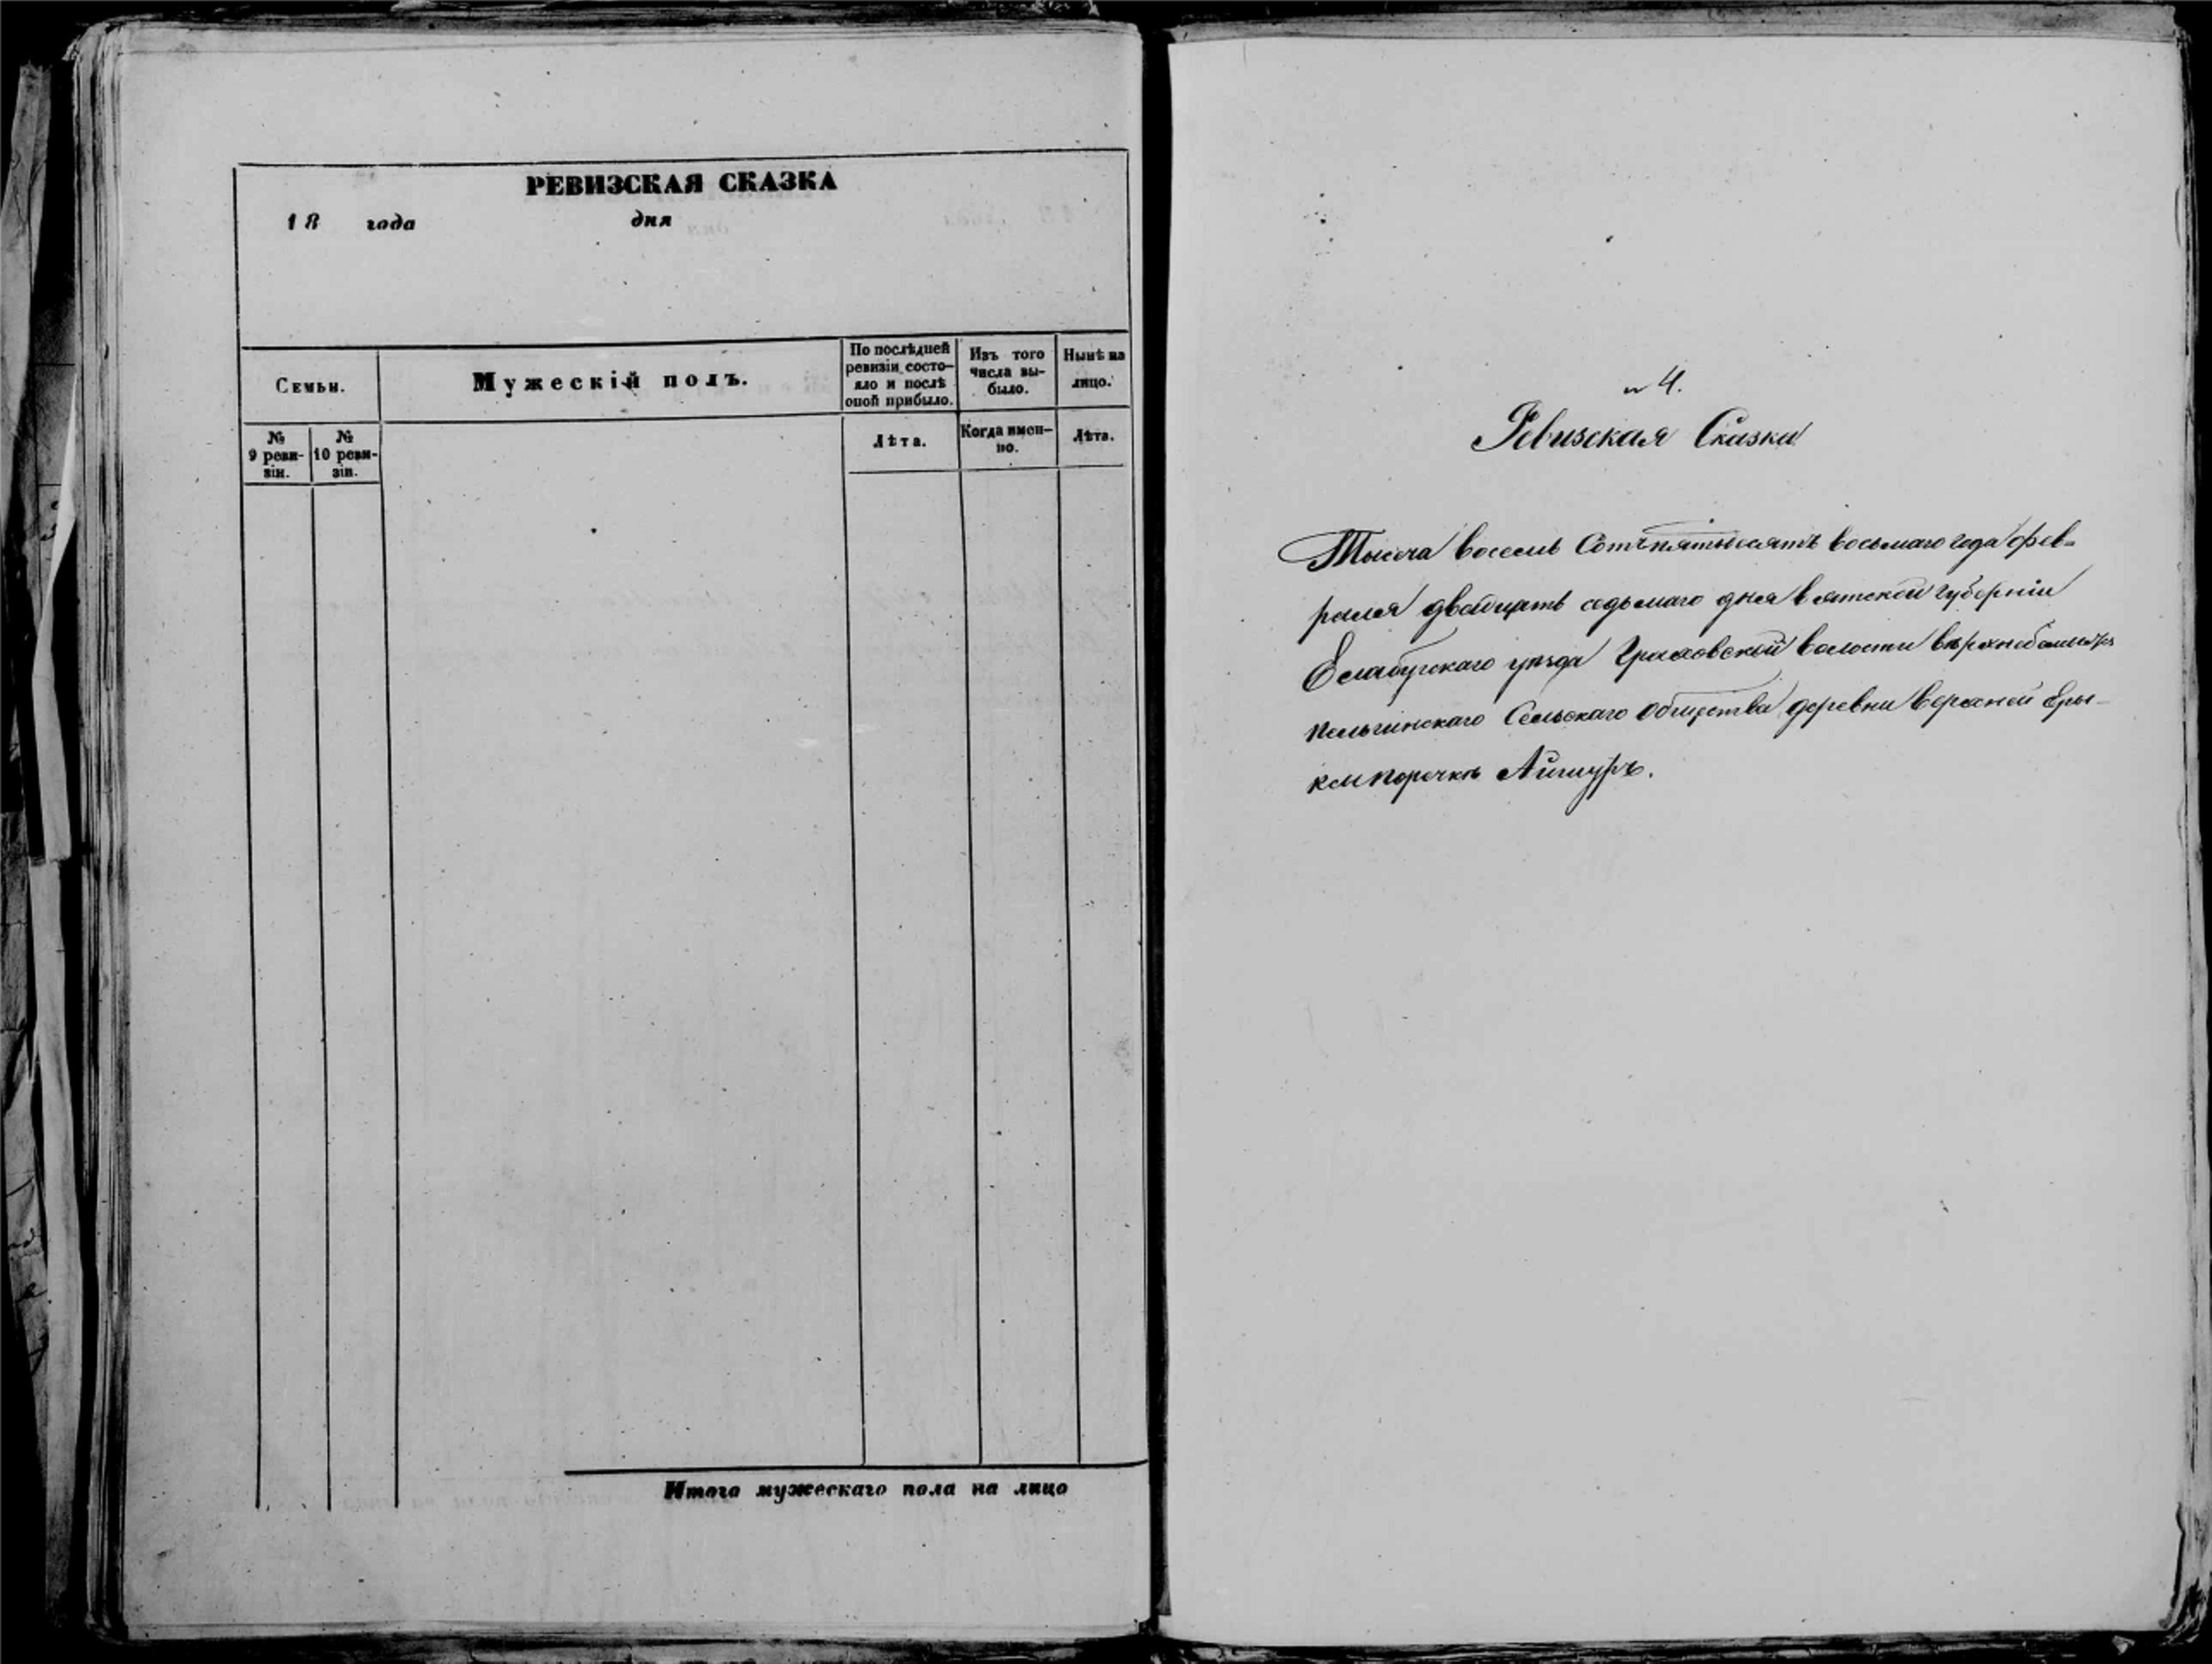 РЕВИЗСКАЯ СКАЗКА
18 года дня
Семьи.
Мужескій полъ.
По послѣдней
ревизіи состо-
яло и послѣ
оной прибыло.
Изъ того
числа вы-
было.
Нынѣ на
лицо.
№
9 реви-
зіи.
№
10 реви-
зіи.
Лѣта.
Когда имен-
но.
Лѣта.
Итого мужескаго пола на лицо
№ 4.
Ревизская Сказка
Тысеча восемь Сотъ пятьдесятъ восьмаго года фев-
раля двадцать седьмаго дня Вятской губерніи
Елабугскаго уѣзда Граховской волости
пельгинскаго Сельскаго общества деревни Верхней Еры-
кси поречкѣ Айшуръ.